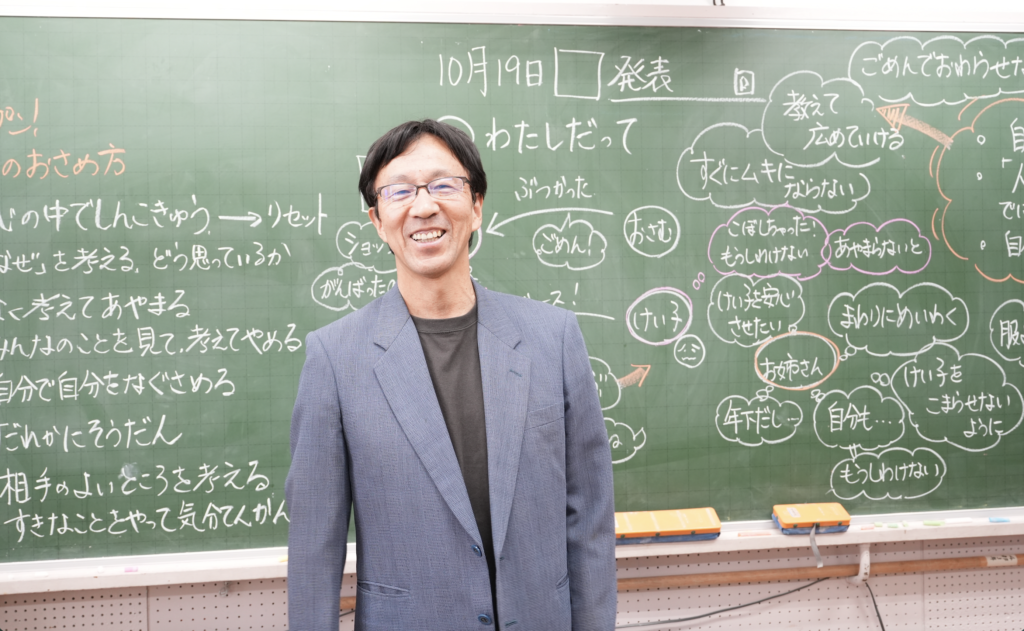 10月19日 発表
わたしだって
の中でしんこきゅう。→リセット
なぜ」を考える。どう思っているか
考えてあやまる
みんなのことを見て、考えてやめる
自分で自分をなぐさめる
だれかにそうだん
相手のよいところを考える
すきなことをやって気分てんかん
のおさめ方
ぶつかった
ごめん!
おさむ
がんばった
けい子
すぐにムキに
ならない
教えて
広めていける
ごめんでおわらせた
こぼしちゃった!
もうしわけない
あやまらないと
けい子を安心
させたい
まわりにめいわく
お姉さん
年下だし…
自分も…
けい子を
こまらせない
ように
もうしわけない
服